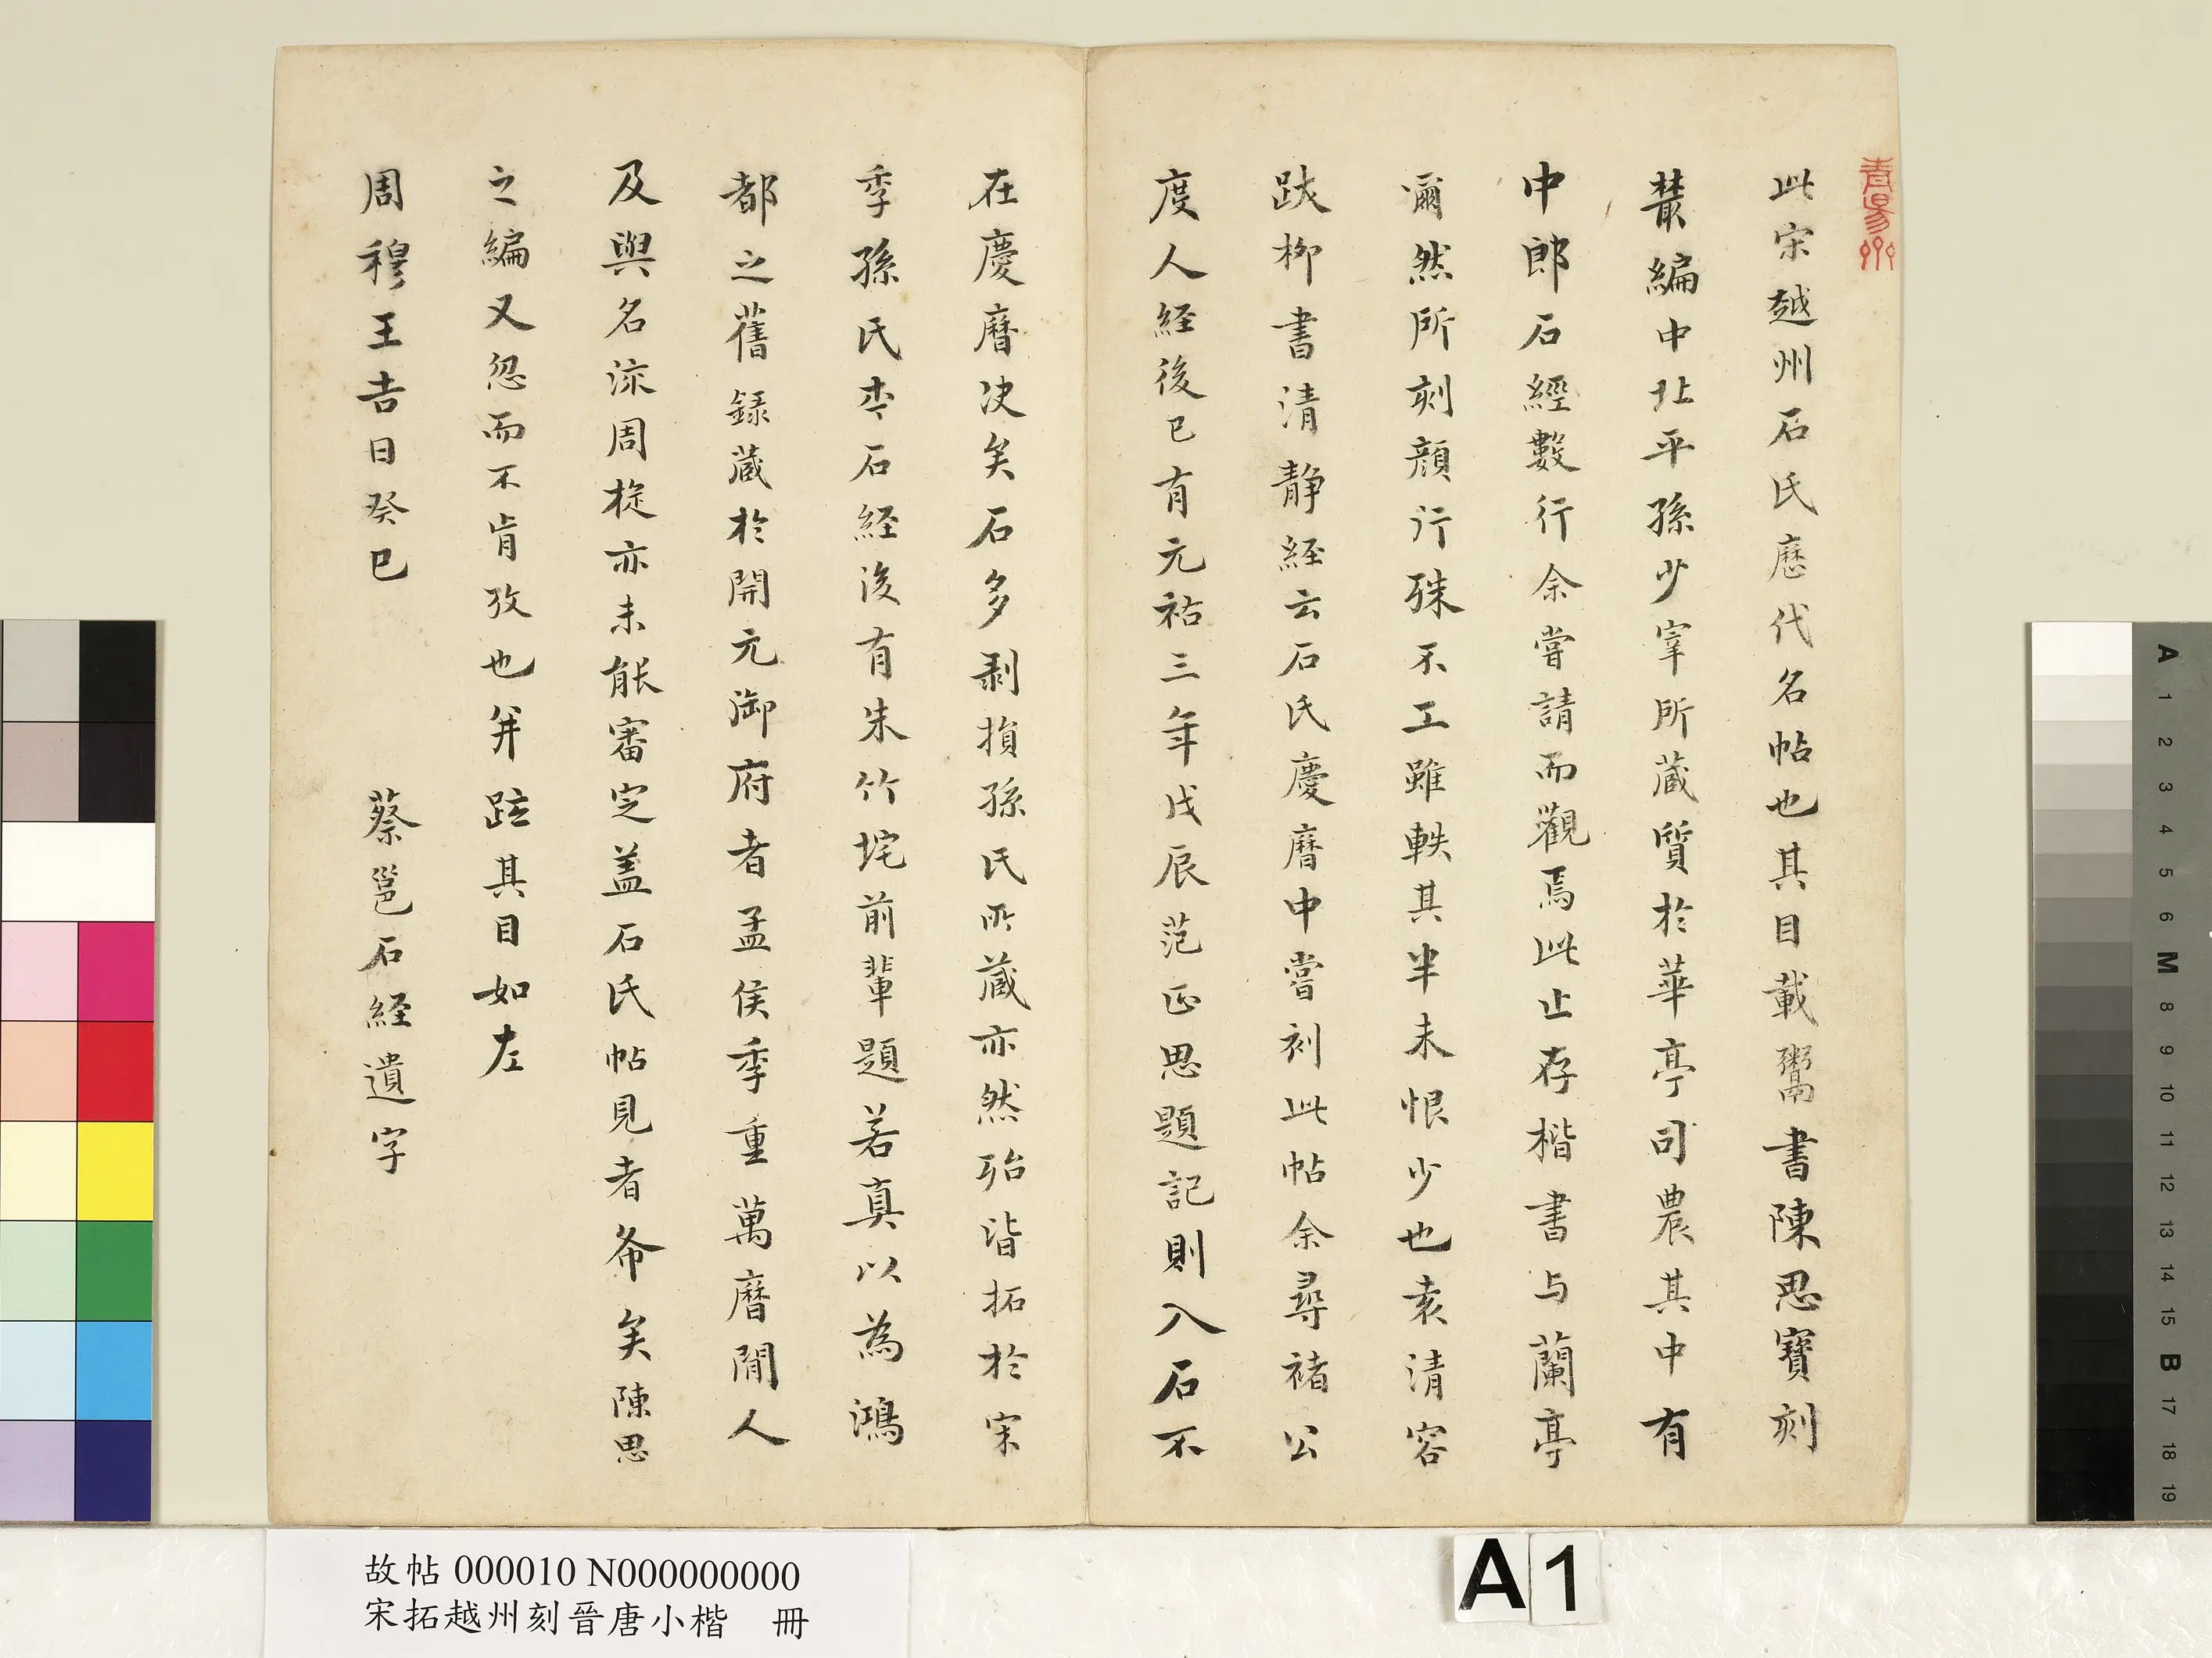 此宋越州石氏歷代名帖也其目載鬻書陳思寶刻
叢編中北平孫少宰所藏質於華亭司農其中有
中郎石經數行余嘗請而觀焉此止存楷書与蘭亭
爾然所刻顔行殊不工雖軼其半未恨少也袁清容
跋柳書清静経云石氏慶曆中嘗刻此帖余尋褚公
度人経後已有元祐三年戊辰范正思題記則入石不
在慶曆决矣石多剥損孫氏所藏亦然殆皆拓於宋
季孫氏本石経後有朱竹垞前輩題若真以為鴻
都之舊録藏於開元御府者孟侯季重萬曆間人
及與名流周旋亦未能審定盖石氏帖見者希矣陳思
之編又忽而不肯攷也并䟱其目如左
周穆王吉日癸巳
蔡邕石経遺字
故帖 000010 N000000000
宋拓越州刻晉唐小楷 冊
A1
A 1 2 3 4 5 6 M 8 9 10 11 12 13 14 15 B 17 18 19